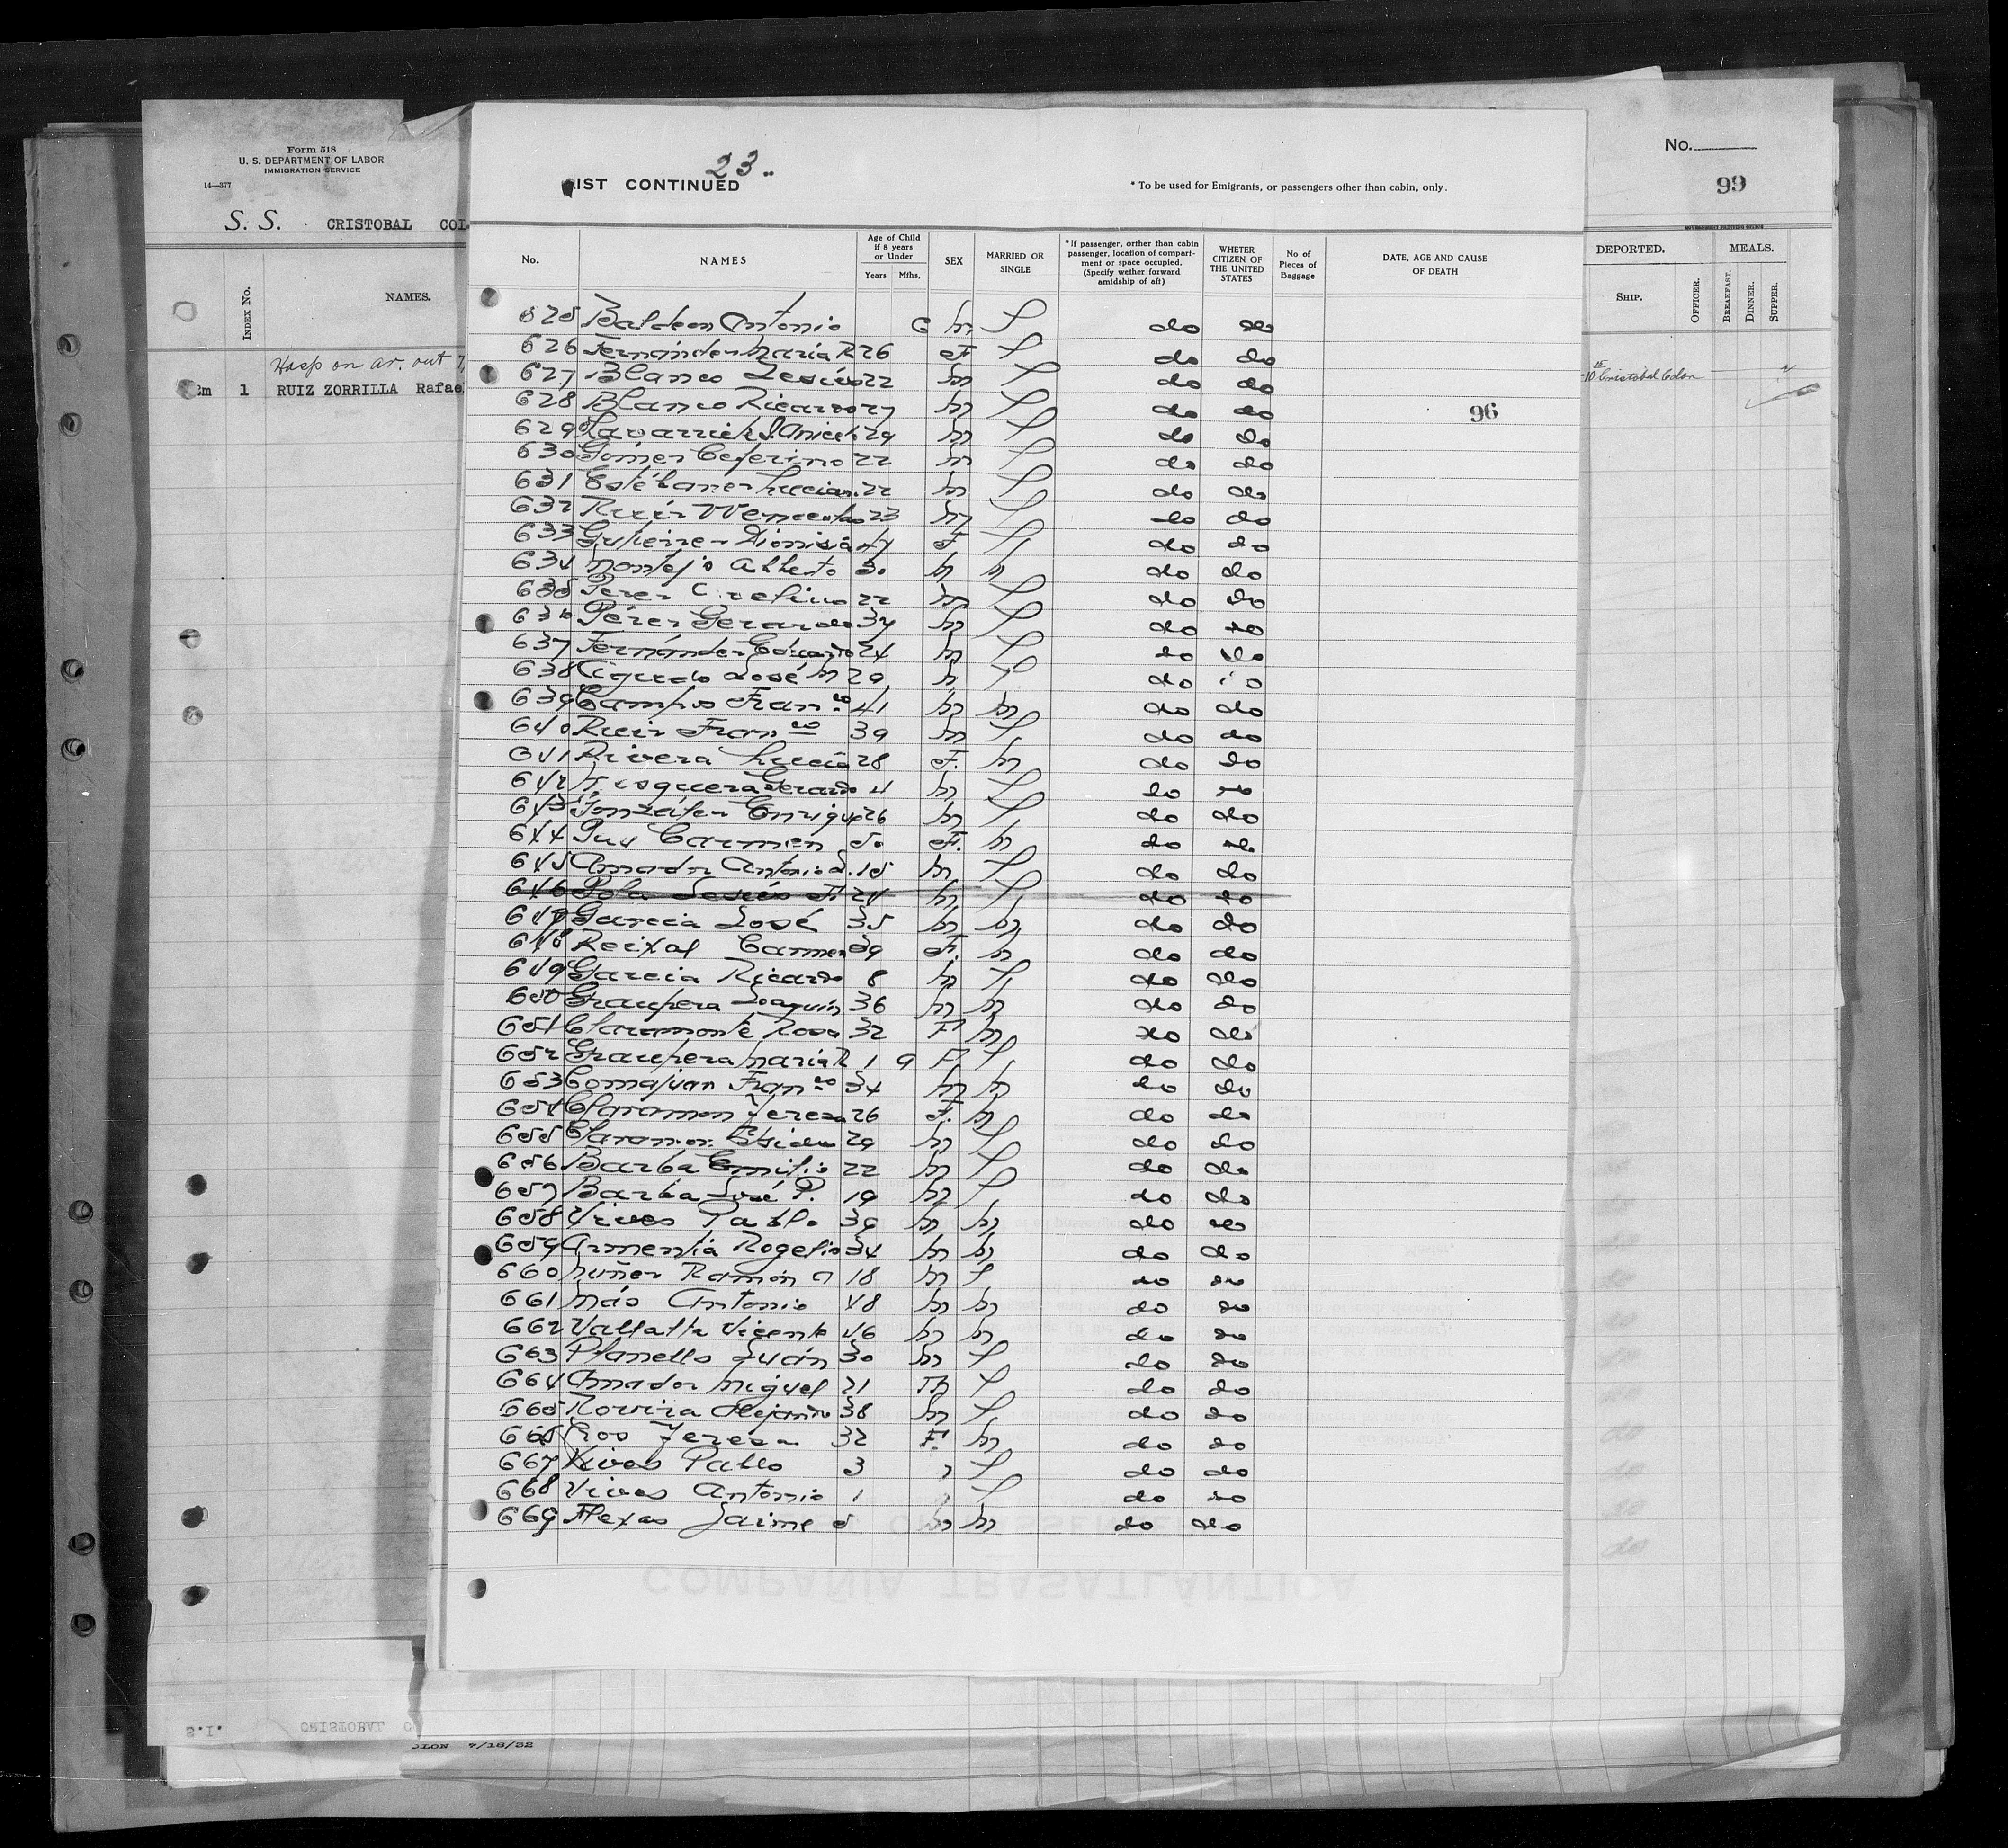 Form 518
U. S. DEPARTMENT OF LABOR
IMMIGRATION SERVICE
14—577
S. S. CRISTOBAL COL
INDEX No.
NAMES.
Hosp on ar. out 7/
1 RUIZ ZORRILLA Rafael
No.
99
DEPORTED.
MEALS.
SHIP.
OFFICER.
BREAKFAST.
DINNER.
SUPPER.
Cristobal Colon
23
IST CONTINUED
* To be used for Emigrants, or passengers other than cabin, only.
No.
NAMES
Age of Child if 8 years or Under
Years Mths.
SEX
MARRIED OR SINGLE
* If passenger, orther than cabin passenger, location of compartment or space occupied. (Specify wether forward amidship of aft)
WHETER CITIZEN OF THE UNITED STATES
No of Pieces of Baggage
DATE, AGE AND CAUSE OF DEATH
96
625 Baldeon Antonio 6 m S do do
626 Fernández María R 26 F S do do
627 Blanco Jesús 22 m S do do
628 Blanco Ricardo 27 m S do do
629 29 m S do do
630 Gómez Ceferino 22 m S do do
631 Estébanez Lucian. 22 m S do do
632 Ruiz Wenceslao 23 m S do do
633 Gutierrez Dionisia 47 F S do do
634 Montejo Alberto 30 m m do do
635 Perez 22 m S do do
636 Pérez Gerardo 34 m S do do
637 Fernández Eduardo 24 m S do do
638 José M 29 m S do do
639 Campos Franco 41 m m do do
640 Ruiz Franco 39 m S do do
641 Rivera Lucía 28 F. m do do
642 Gerardo 4 m S do do
643 González Enrique 26 m S do do
644 Puy Carmen 50 F. m do do
645 Amador Antonio S. 15 m S do do
646 Pola Jesús F 24 m S do do
647 Garcia José 35 m m do do
648 Reixal Carmen 39 F. m do do
649 Garcia Ricardo 8 m S do do
650 Graupera Joaquín 36 m m do do
651 Claramonte Rosa 32 F m do do
652 Graupera María R 1 9 F S do do
653 Comajuan Franco 34 m m do do
654 Claramon Teresa 26 F. m do do
655 Claramon Isidro 29 m S do do
656 Barba Emilio 22 m S do do
657 Barba José P. 19 m S do do
658 Vives Pablo 39 m m do do
659 Armentia Rogelio 34 m m do do
660 Nuñez Ramón A 18 m S do do
661 Más Antonio 48 m m do do
662 Vallalta Vicente 46 m m do do
663 Planells Juán 30 m S do do
664 Amador Miguel 21 m S do do
665 Rovira Alejandro 38 m S do do
666 Cros Teresa 32 F. m do do
667 Vives Pablo 3 S do do
668 Vives Antonio 1 S do do
669 Flexas Jaime 5 m m do do
COMPAÑIA TRASATLÁNTICA
S.I. CRISTOBAL C
OLON 7/18/32